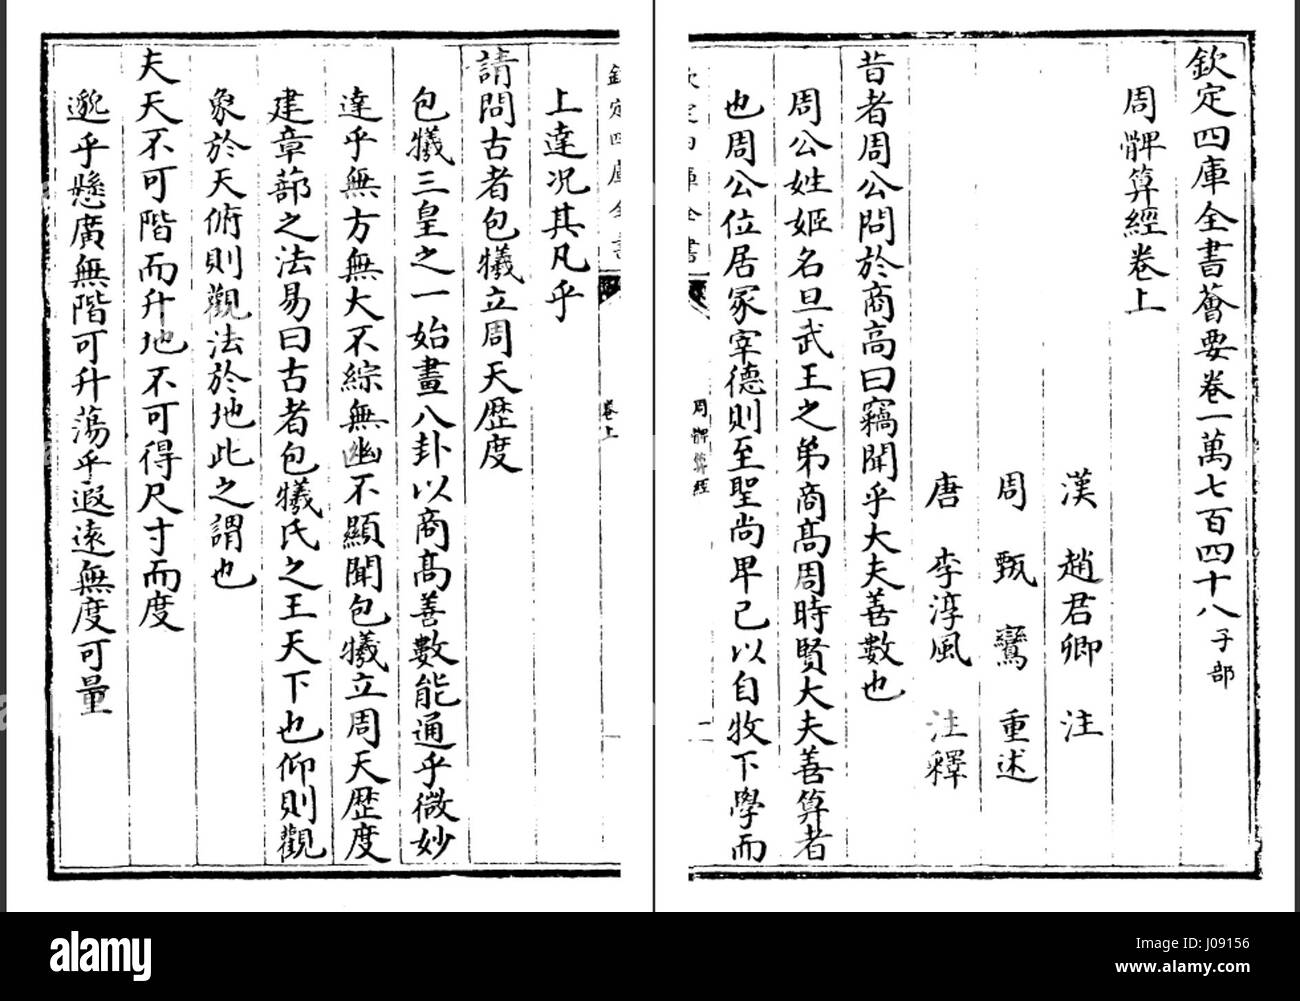 欽定四庫全書薈要卷一萬七百四十八子部
周髀算經卷上
漢 趙君卿 注
周 甄鸞 重述
唐 李淳風 注釋
昔者周公問於商高曰竊聞乎大夫善數也
周公姓姬名旦武王之弟商高周時賢大夫善算者
也周公位居冢宰德則至聖尚卑己以自牧下學而
欽定四庫全書
周髀算經
一
欽定四庫全書
卷上
上達况其凡乎
請問古者包犧立周天歴度
包犧三皇之一始畫八卦以商高善數能通乎微妙
達乎無方無大不綜無幽不顯聞包犧立周天歴度
建章蔀之法易曰古者包犧氏之王天下也仰則觀
象於天俯則觀法於地此之謂也
夫天不可階而升地不可得尺寸而度
邈乎懸廣無階可升蕩乎遐遠無度可量
alamy
Image ID: J09156
www.alamy.com